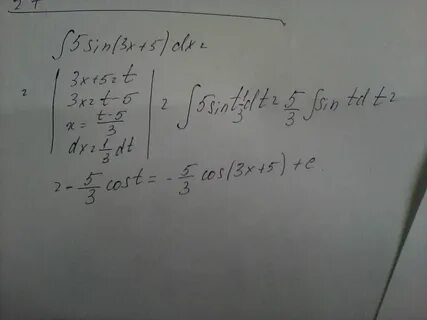 ∫5sin(3x+5)dx=
= | 3x+5=t
3x=t-5
x=(t-5)/3
dx=1/3 dt | = ∫5sint 1/3 dt = 5/3 ∫sin t dt =
= -5/3 cost = -5/3 cos(3x+5)+c.